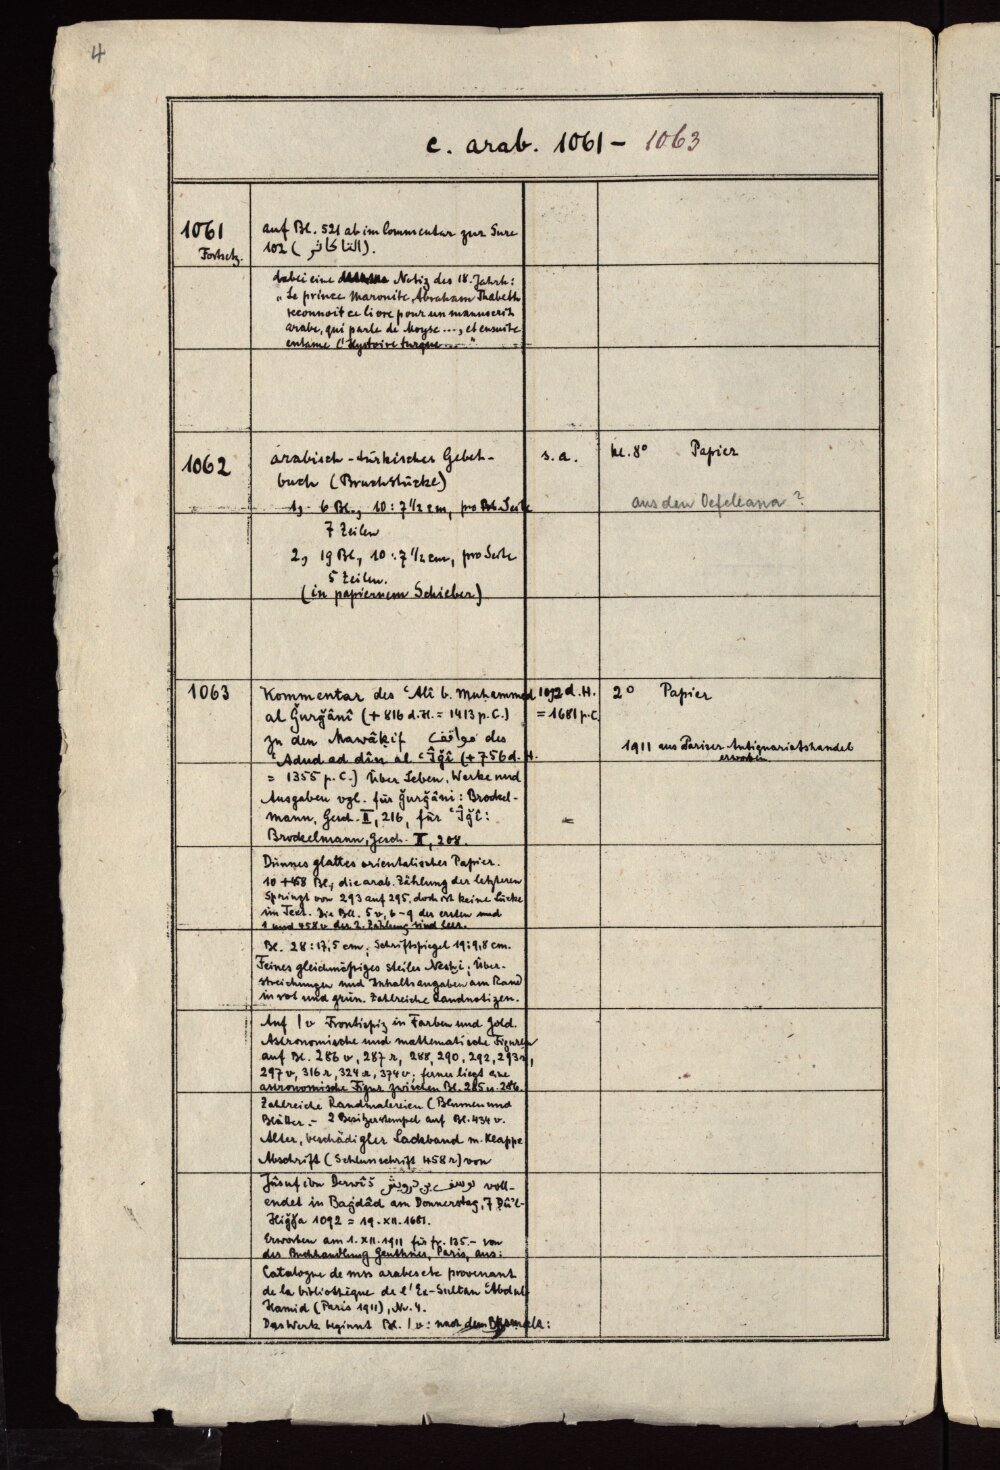 4
c. arab. 1061 - 1063
1061
Fortsetz.
auf Bl. 521 ab im Commentar zur Sure
102 (التكاثر).
dabei eine Notiz des 18. Jahrh:
„Le prince Maronite, Abraham Thabeth
reconnoit ce livre pour un manuscrit
arabe, qui parle de Moyse ..., et ensuite
entame l'Hystoire turque ...."
1062
arabisch-türkisches Gebet-
buch (Bruchstücke)
s.a.
kl. 8° Papier
aus den Oefeleana?
1, - 6 Bl., 10 : 7 1/2 cm, pro Seite
7 Zeilen
2, 19 Bl, 10 : 7 1/2 cm, pro Seite
5 Zeilen.
(in papiernem Schieber)
1063
Kommentar des ʿAlî b. Muhammed
al Ǧurǧânî (+ 816 d.H. = 1413 p.C.)
zu den Mawâḳif مواقف des
ʿAdud ad dîn al ʿÎǧî (+ 756 d. H.
= 1355 p.C.) Über Leben, Werke und
Ausgaben vgl. für Ǧurǧâni: Brockel-
mann, Gesch. II, 216, für ʿÎǧî:
Brockelmann, Gesch. II, 208.
1092 d.H.
= 1681 p.C.
2° Papier
1911 aus Pariser Antiquariatshandel
erworben.
Dünnes glattes orientalisches Papier.
10 + 458 Bl., die arab. Zählung der letzteren
springt von 293 auf 295, doch ist keine Lücke
im Text. Die Bll. 5v, 6-9 der ersten und
1 und 458v der 2. Zählung sind leer.
Bl. 28 : 17,5 cm; Schriftspiegel 19 : 9,8 cm.
Feines gleichmäßiges steiles Nesḫi; Über-
streichungen und Inhaltsangaben am Rand
in rot und grün. Zahlreiche Randnotizen.
Auf 1v Frontispiz in Farben und Gold.
Astronomische und mathematische Figuren
auf Bl. 286 v, 287 r, 288, 290, 292, 293 r,
297 v, 316 r, 324 r, 374 v; ferner liegt eine
astronomische Figur zwischen Bl. 285 u. 286.
Zahlreiche Randmalereien (Blumen und
Blätter. - 2 Besitzerstempel auf Bl. 434 v.
Alter, beschädigter Lackband m. Klappe
Abschrift (Schlussschrift 458 r) von
Jûsuf ibn Derwîš يوسف بن درويش voll-
endet in Baġdâd am Donnerstag, 7 Ḏû'l-
Hiǧǧa 1092 = 19. XII. 1681.
Erworben am 1. XII. 1911 für fr. 135.- von
der Buchhandlung Geuthner, Paris, aus:
Catalogue de mss arabes etc provenant
de la bibliothèque de l'Ex-Sultan ʿAbdul-
Hamid (Paris 1911), Nr. 4.
Das Werk beginnt Bl. 1 v: nach dem Bismala: